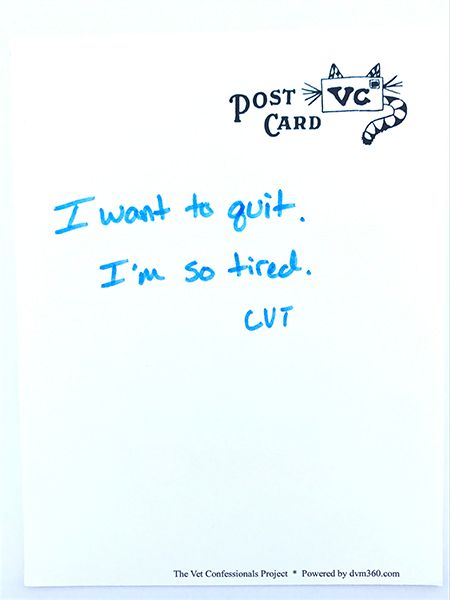 POST
CARD
VC
I want to quit.
I'm so tired.
CVT
The Vet Confessionals Project * Powered by dvm360.com